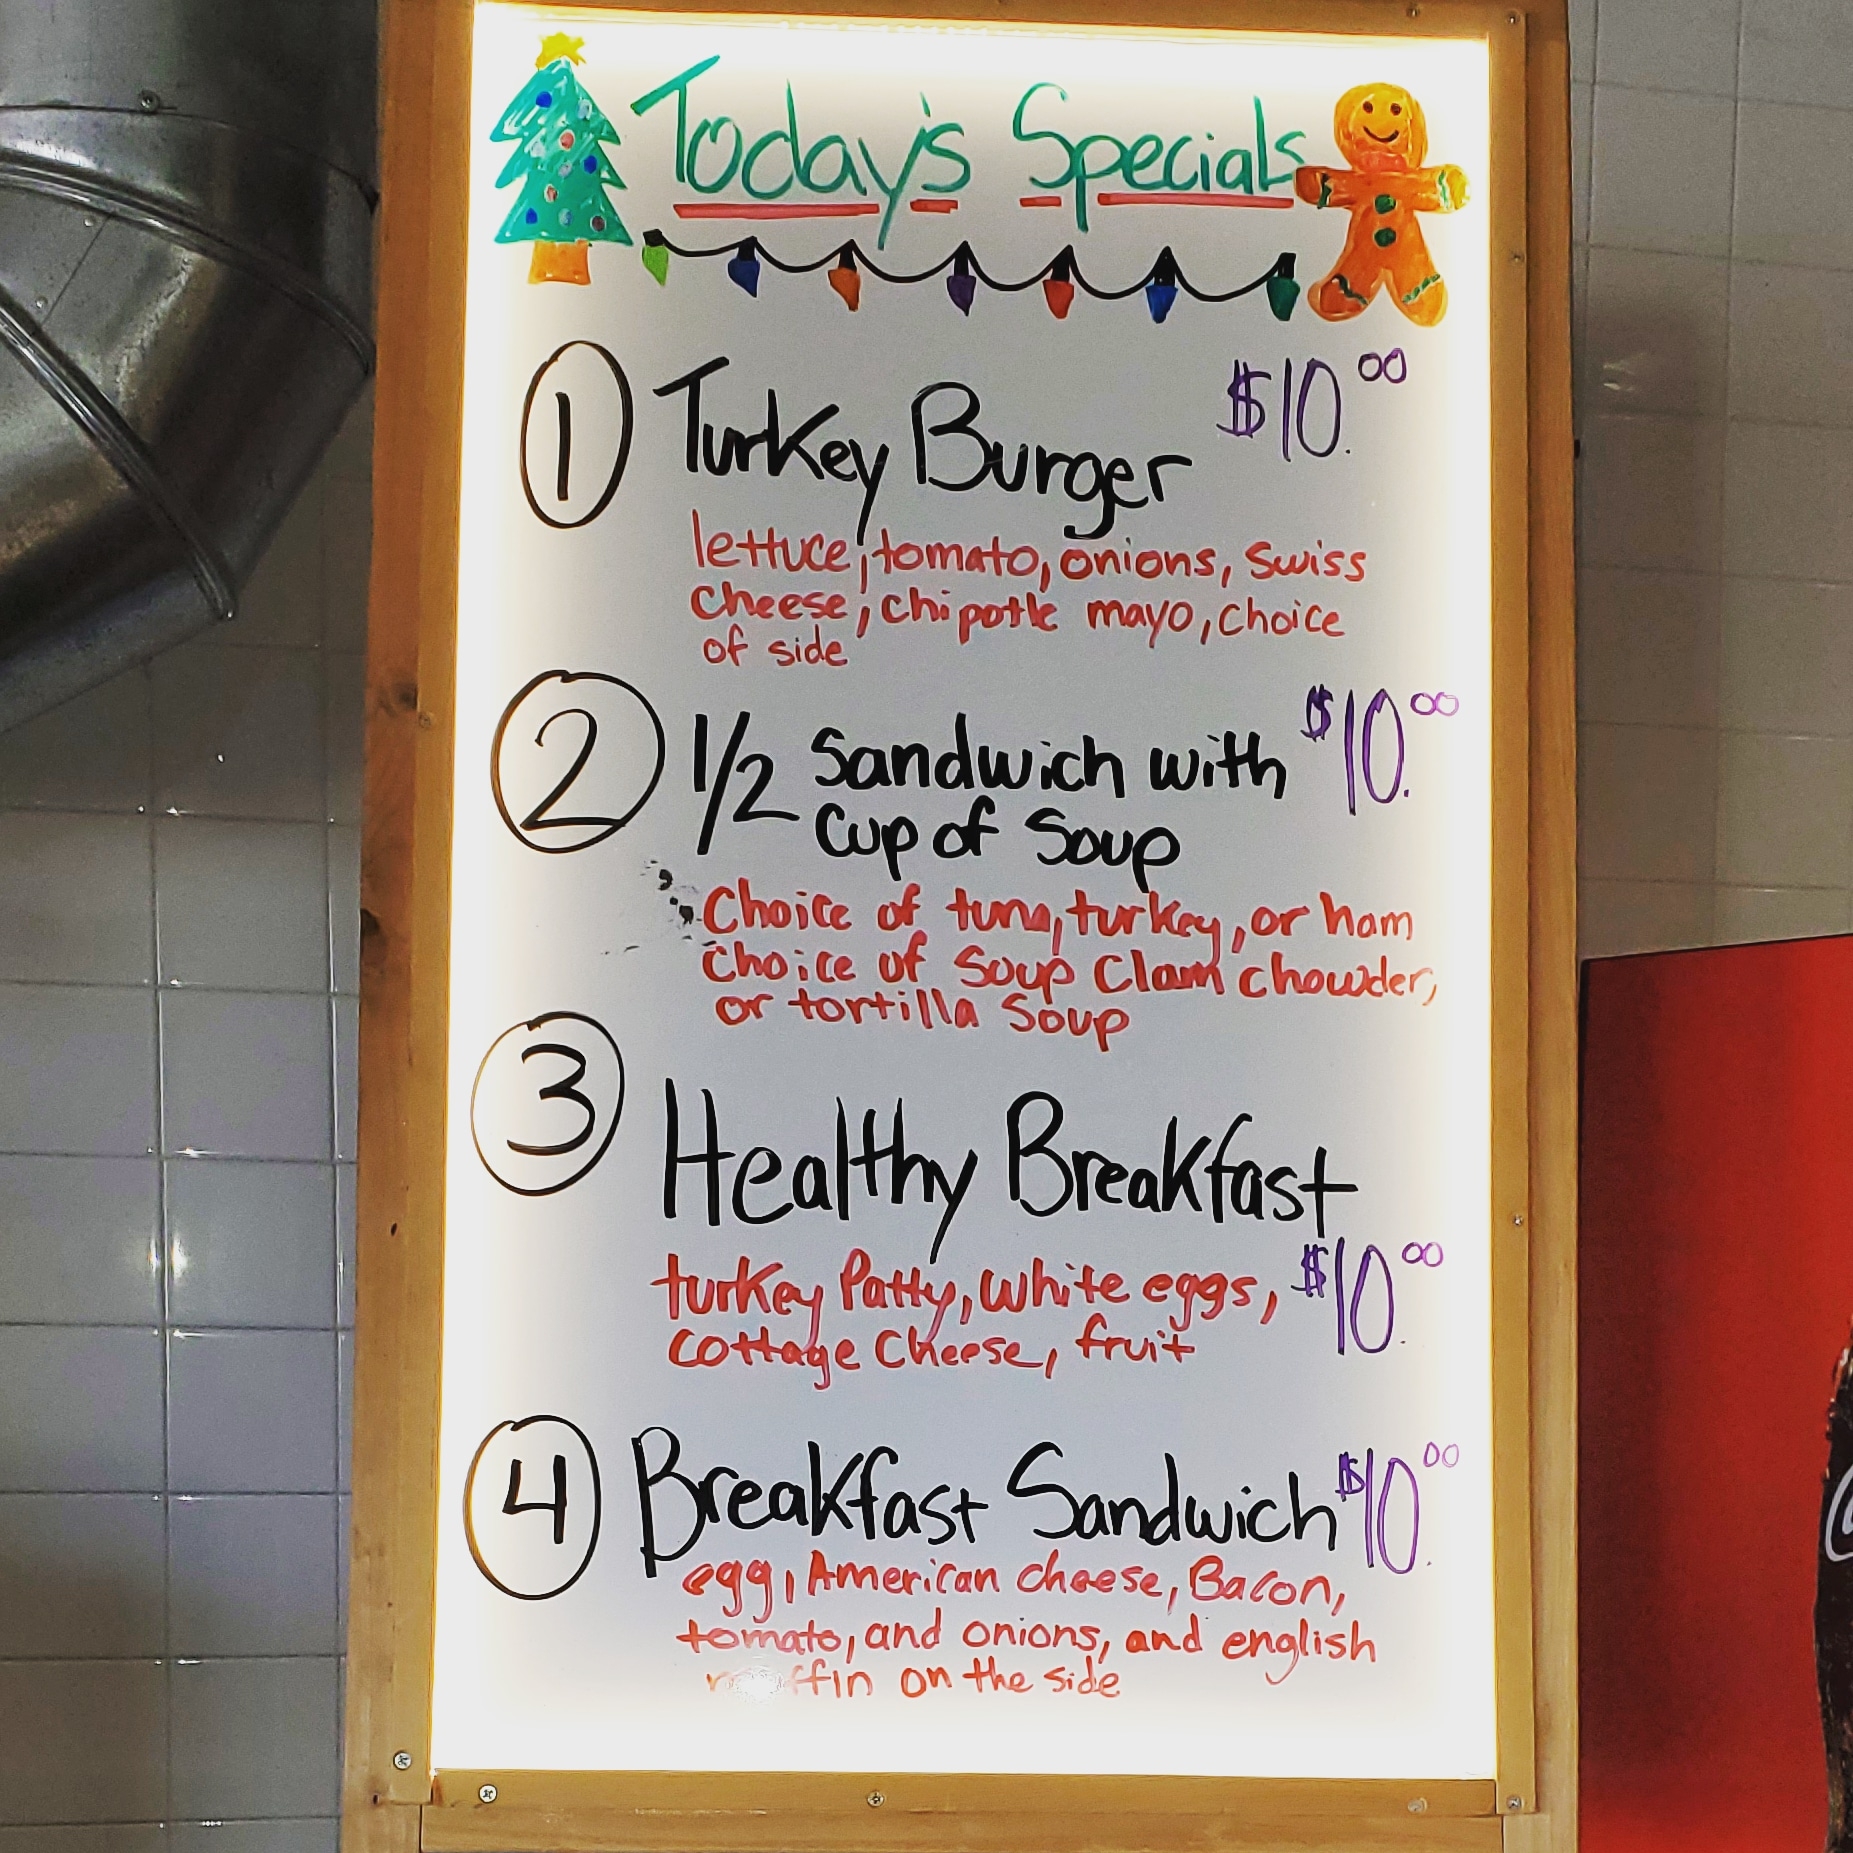 Today's Specials
1 Turkey Burger $10.00
lettuce, tomato, onions, Swiss
cheese, chipotle mayo, choice
of side
2 1/2 Sandwich with $10.00
Cup of Soup
Choice of tuna, turkey, or ham
Choice of Soup Clam chowder,
or tortilla Soup
3 Healthy Breakfast
turkey Patty, white eggs, $10.00
cottage cheese, fruit
4 Breakfast Sandwich $10.00
egg, American cheese, Bacon,
tomato, and onions, and english
muffin on the side